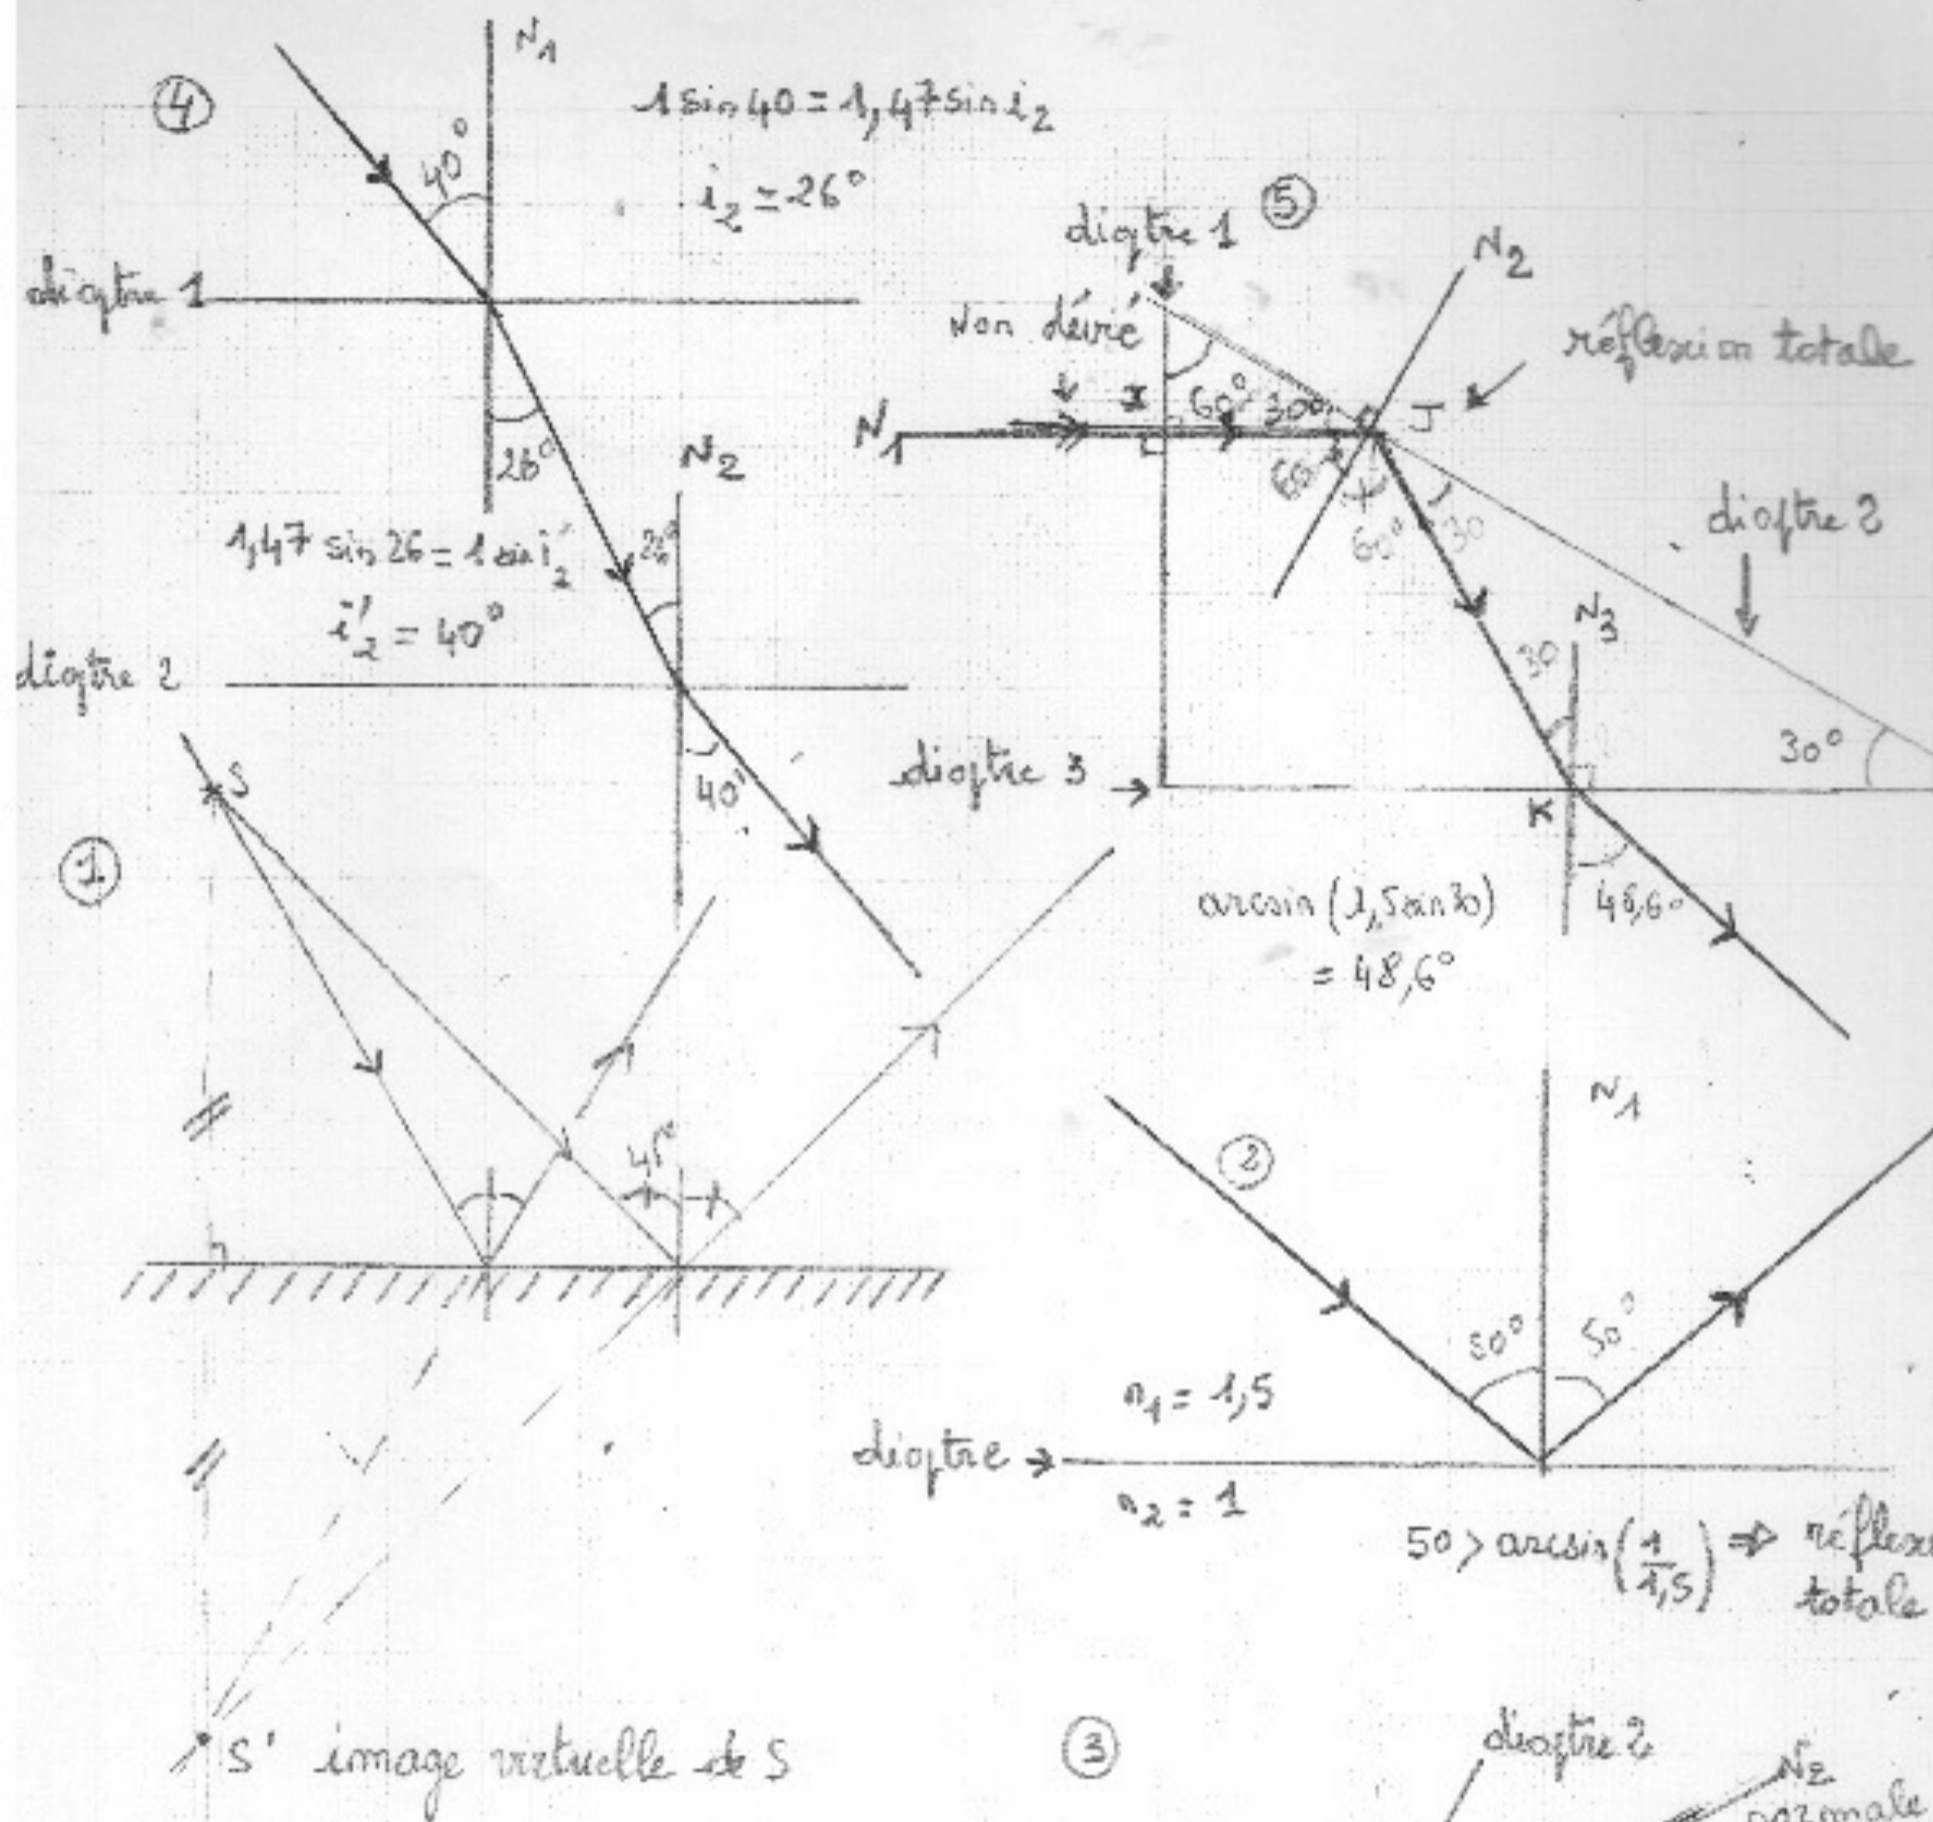 ④
N₁
40°
1 sin 40 = 1,47 sin i₂
i₂ = 26°
dioptre 1
26°
N₂
1,47 sin 26 = 1 sin i'₂
i'₂ = 40°
26°
dioptre 2
40°
⑤
dioptre 1
N₂
Non dévié
réflexion totale
N₁
I
60°
30°
J
60°
60°
30
dioptre 2
N₃
30
30°
dioptre 3
K
48,6°
arcsin (1,5 sin 30)
= 48,6°
①
S
45°
S' image virtuelle de S
②
N₁
50°
50°
n₁ = 1,5
dioptre
n₂ = 1
50 > arcsin(1/1,5) ⇒ réflex
totale
③
dioptre 2
N₂
normale